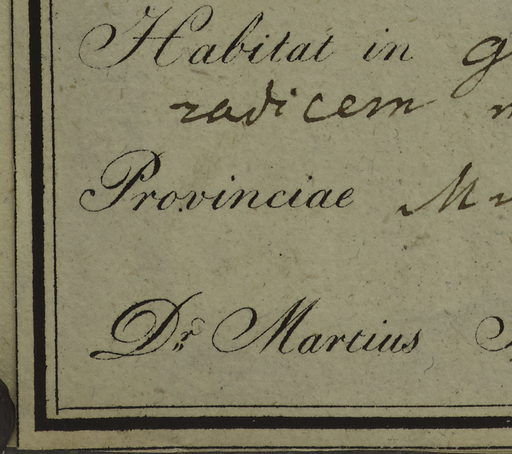 Habitat in
radicem
Provinciae
Dr. Martius